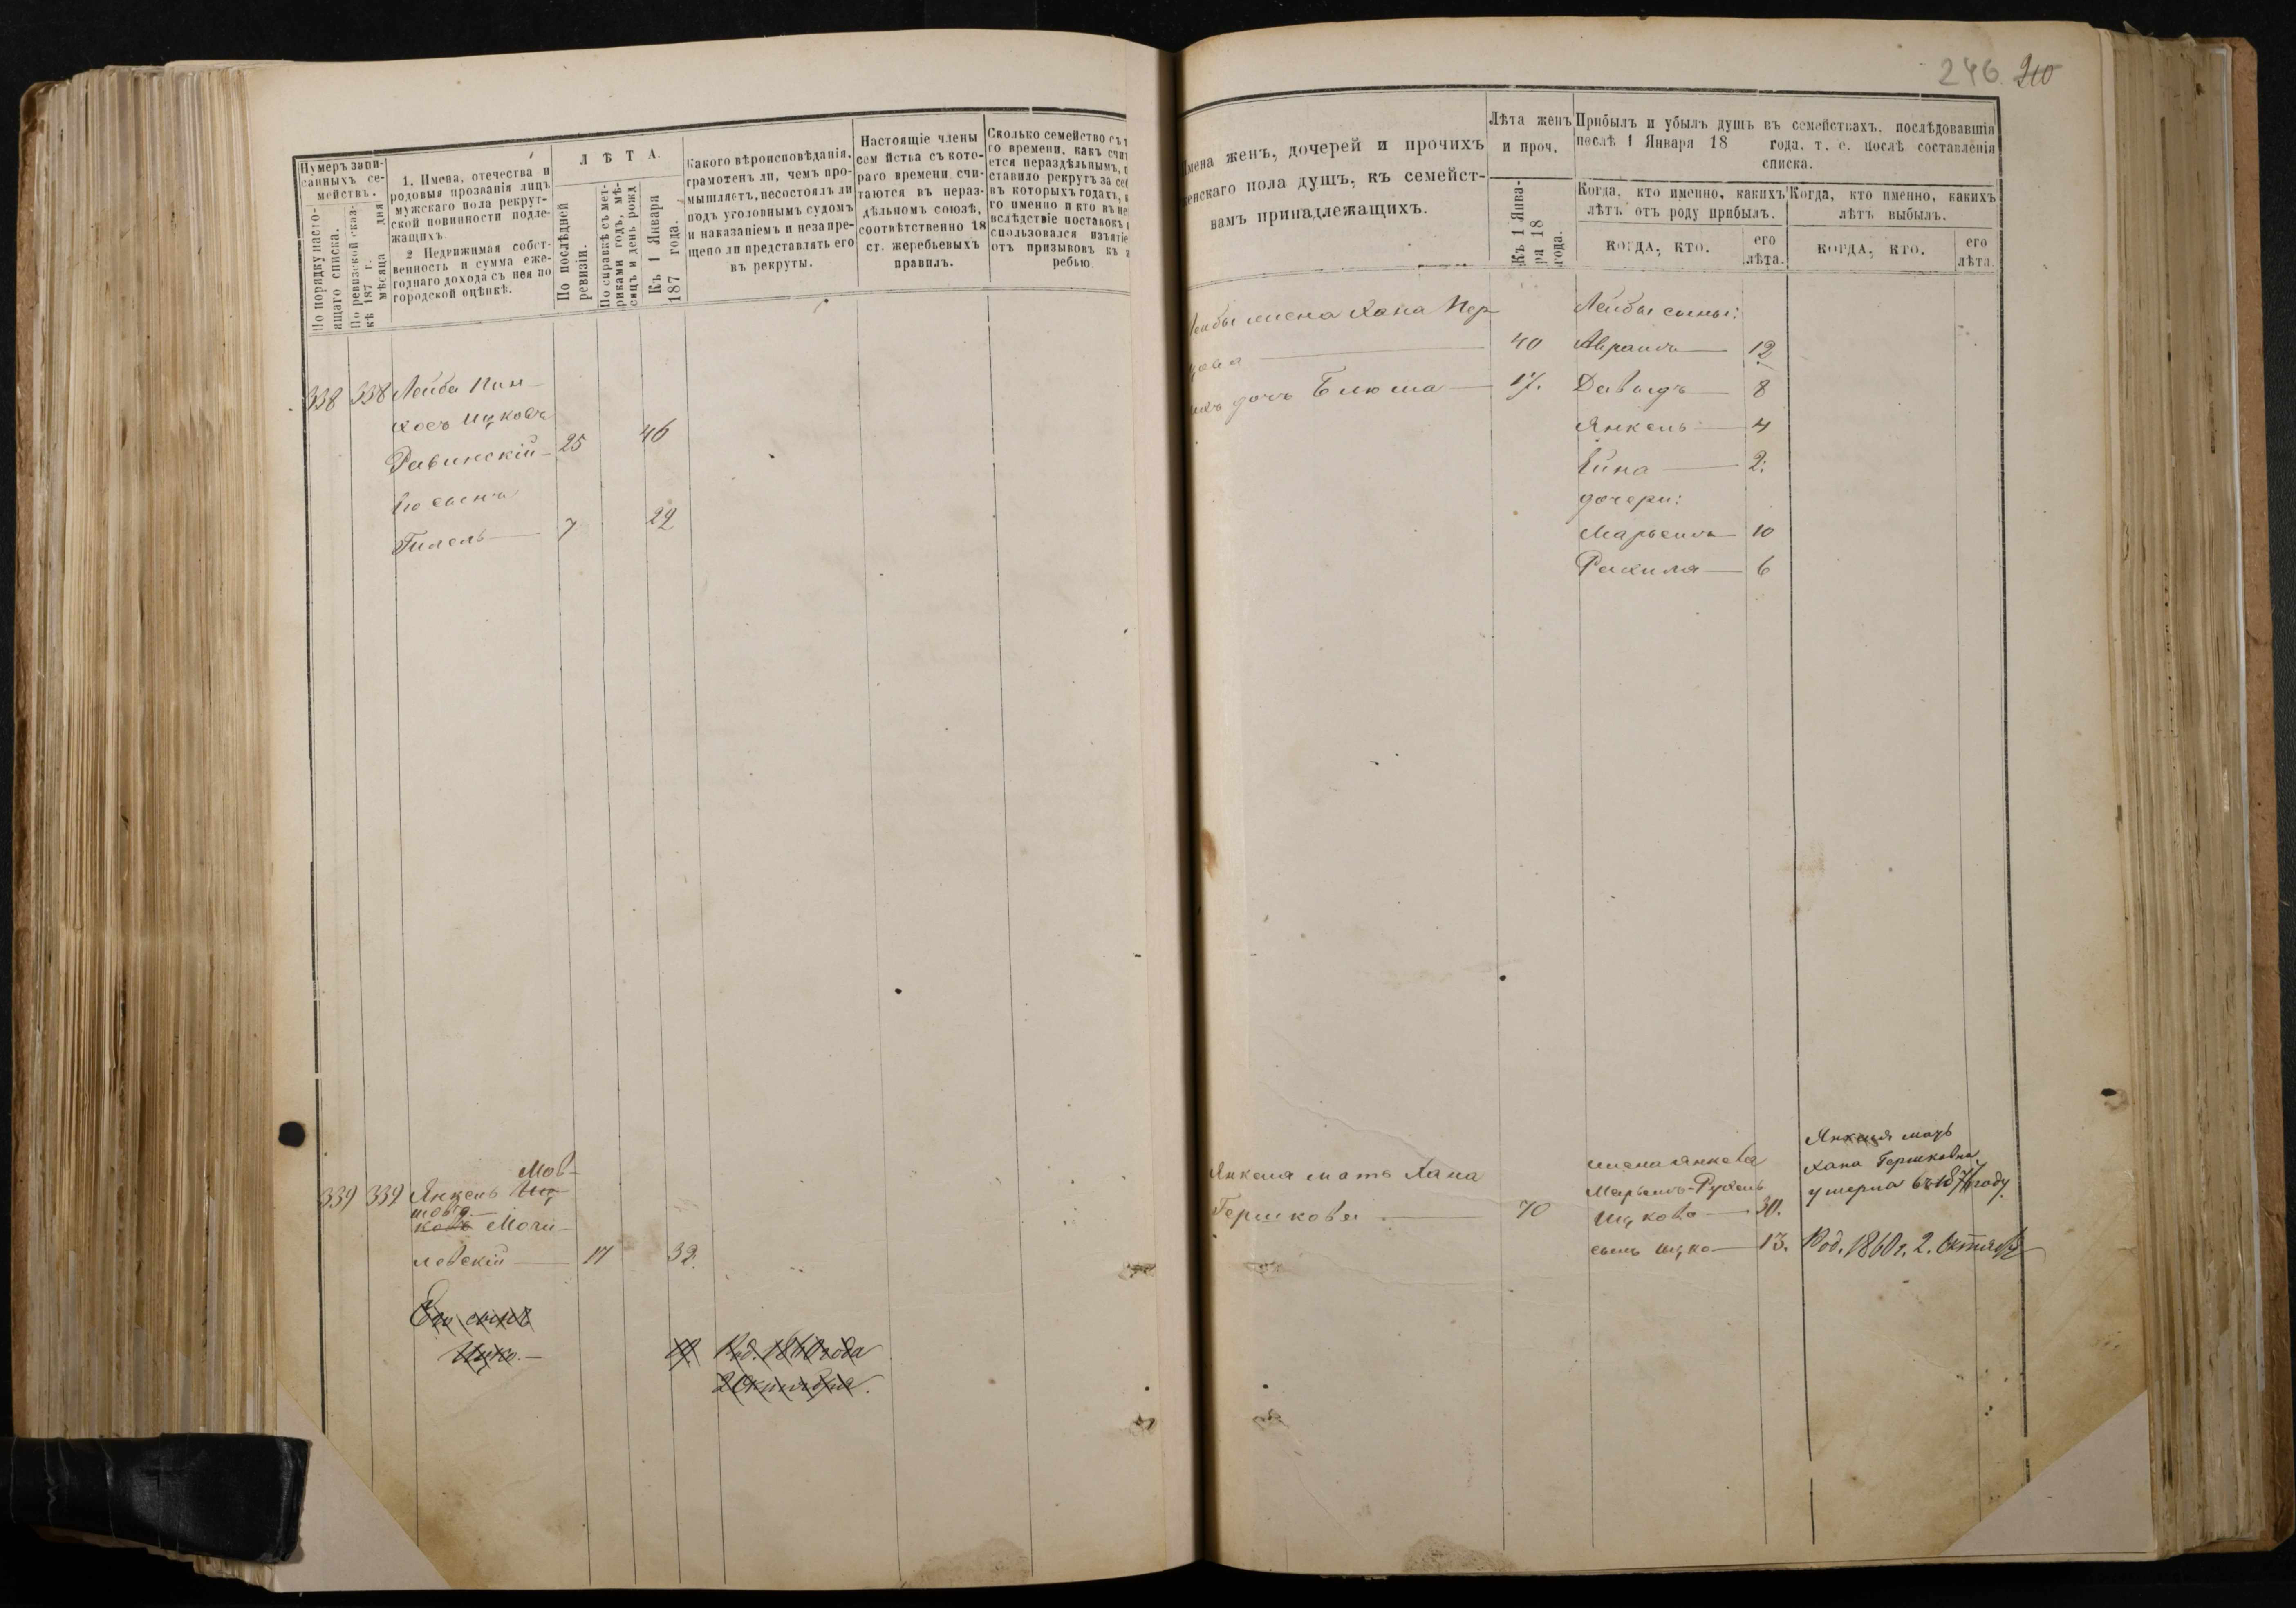 Нумеръ запи-
санныхъ се-
мействъ.
По порядку насто-
ящаго списка.
По ревизской сказ-
кѣ 187 г.
мѣсяца дня
1. Имена, отечества и
родовыя прозванія лицъ
мужскаго пола рекрут-
ской повинности подле-
жащихъ
2 Недвижимая собст-
венность и сумма еже-
годнаго дохода съ нея по
городской оцѣнкѣ.
Л Ѣ Т А.
По послѣдней
ревизіи.
По справкѣ съ мет-
риками годъ, мѣ-
сяцъ и день рожд
Къ 1 Января
187 года.
Какого вѣроисповѣданія,
грамотенъ ли, чемъ про-
мышляетъ, несостоялъ ли
подъ уголовнымъ судомъ
и наказаніемъ и незапре-
щено ли представлять его
въ рекруты.
Настоящіе члены
сем йства съ кото-
раго времени счи-
таются въ нераз-
дѣльномъ союзѣ,
соотвѣтственно 18
ст. жеребьевыхъ
правилъ.
Сколько семейство съ
го времени, какъ счи
ется нераздѣльнымъ,
ставило рекрутъ за се
въ которыхъ годахъ,
го именно и кто въ не
вслѣдствіе поставокъ
спользовался изъятіе
отъ призывовъ къ
ребью.
338 338 Лейба Пин-
хосъ Ицковъ
Равинскій 25 46
Его сынъ
Гилель 7 22
Мов-
339 339 Янкель Иц-
шовъ
ковъ Моги-
левскій 17 32.
Его сынъ
Ицко.
Род. 1860 года
2 Октября.
246 210
Имена женъ, дочерей и прочихъ
женскаго пола душъ, къ семейст-
вамъ принадлежащихъ.
Лѣта женъ
и проч.
Къ 1 Янва-
ра 18
года.
Прибылъ и убылъ душъ въ семействахъ, послѣдовавшія
послѣ 1 Января 18 года, т. е. послѣ составленія
списка.
Когда, кто именно, какихъ
лѣтъ отъ роду прибылъ.
Когда, кто именно, какихъ
лѣтъ выбылъ.
КОГДА, КТО.
его
лѣта.
КОГДА, КТО.
его
лѣта.
Лейбы жена Хана Пер-
цова 40
ихъ дочь Блюма 17.
Лейбы сыны:
Абрамъ 12
Давыдъ 8
Янкель 4
2.
дочери:
Марьемъ 10
Рахиля 6
Янкеля мать Хана
Гершкова 70
жена Янкева
Марьемъ-Рухель
Ицкова 30.
сынъ Ицко 13.
Янкеля мать
Хана Гершковна
умерла въ году
Род. 1860 г. 2. Октября